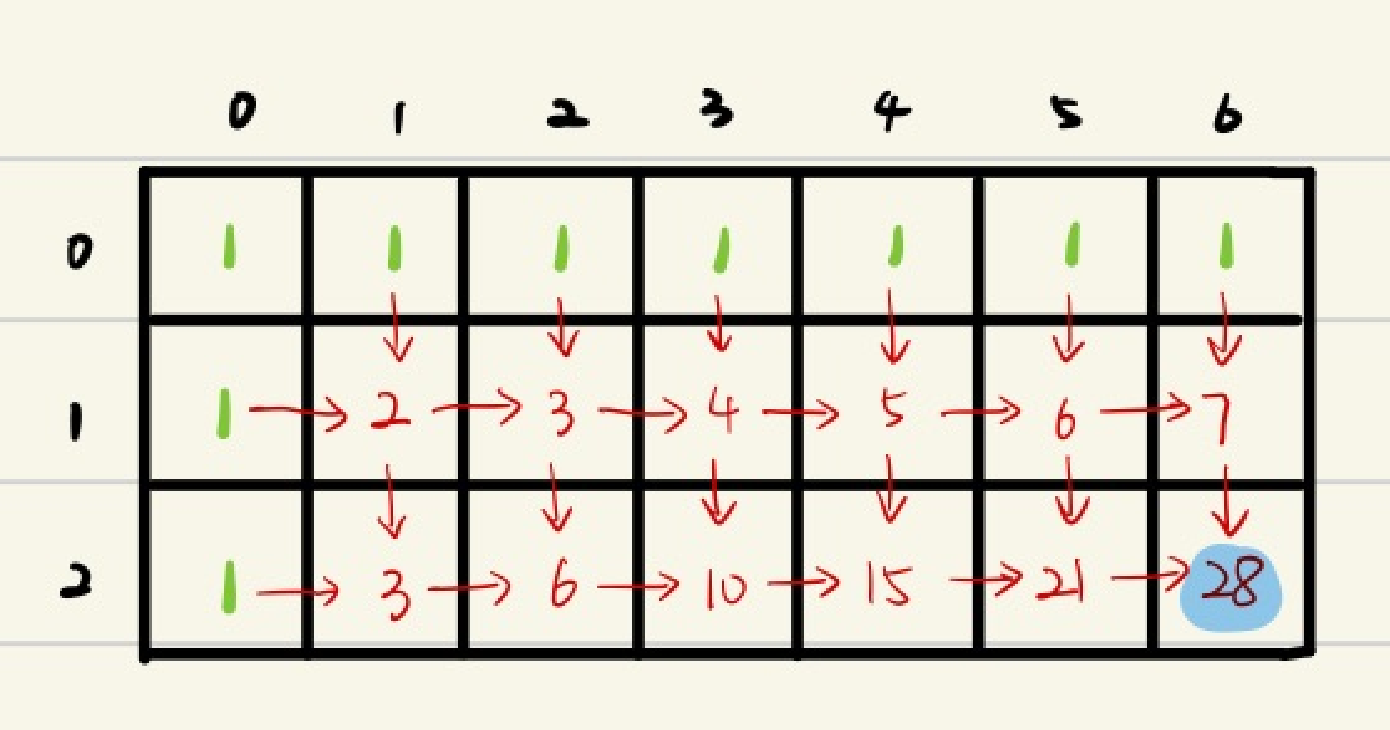 0 1 2 3 4 5 6
0 1 1 1 1 1 1 1
1 1 2 3 4 5 6 7
2 1 3 6 10 15 21 28